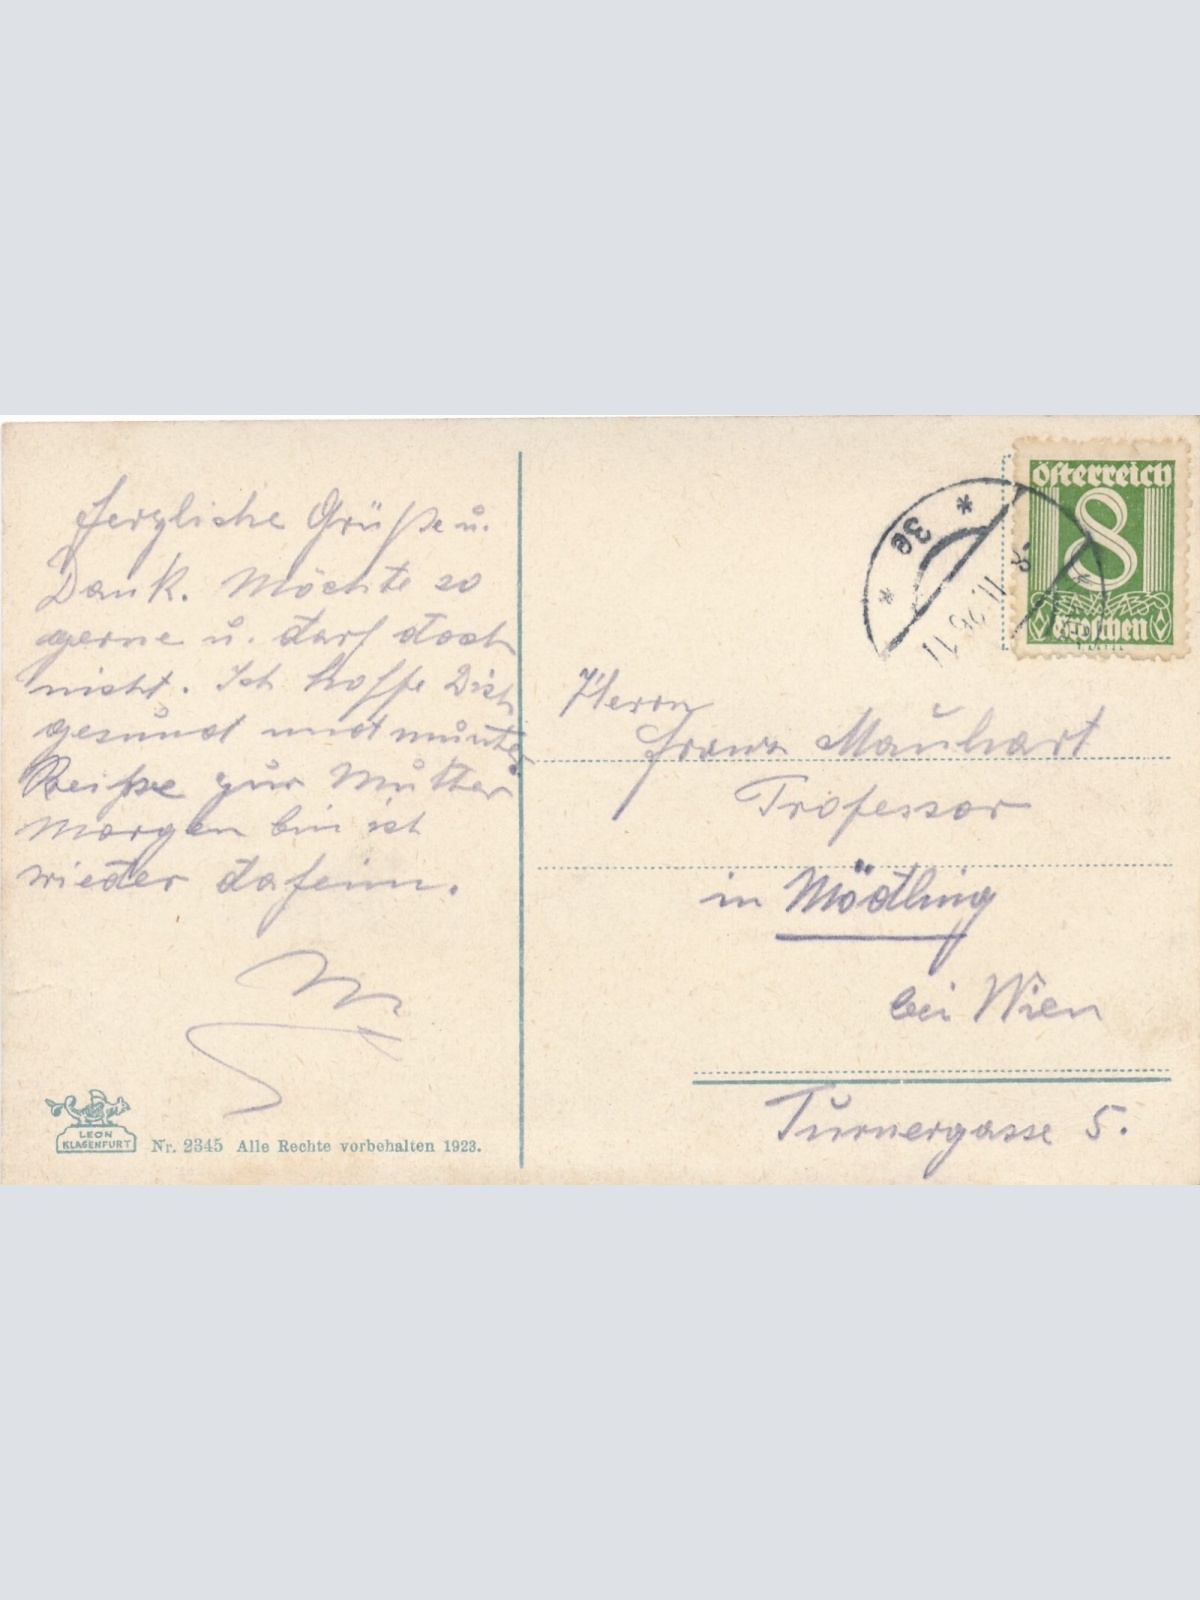 Herzliche Grüße u.
Dank. Möchte so
gerne u. darf doch
nicht. Ich hoffe Dich
gesund und munter.
Reise zur Mutter
Morgen bin ich
wieder daheim.
LEON
KLAGENFURT
Nr. 2345 Alle Rechte vorbehalten 1923.
österreich
8
Groschen
* 3e *
11.26.11
Herrn
Franz Mauhart
Professor
in Mödling
bei Wien
Turnergasse 5.